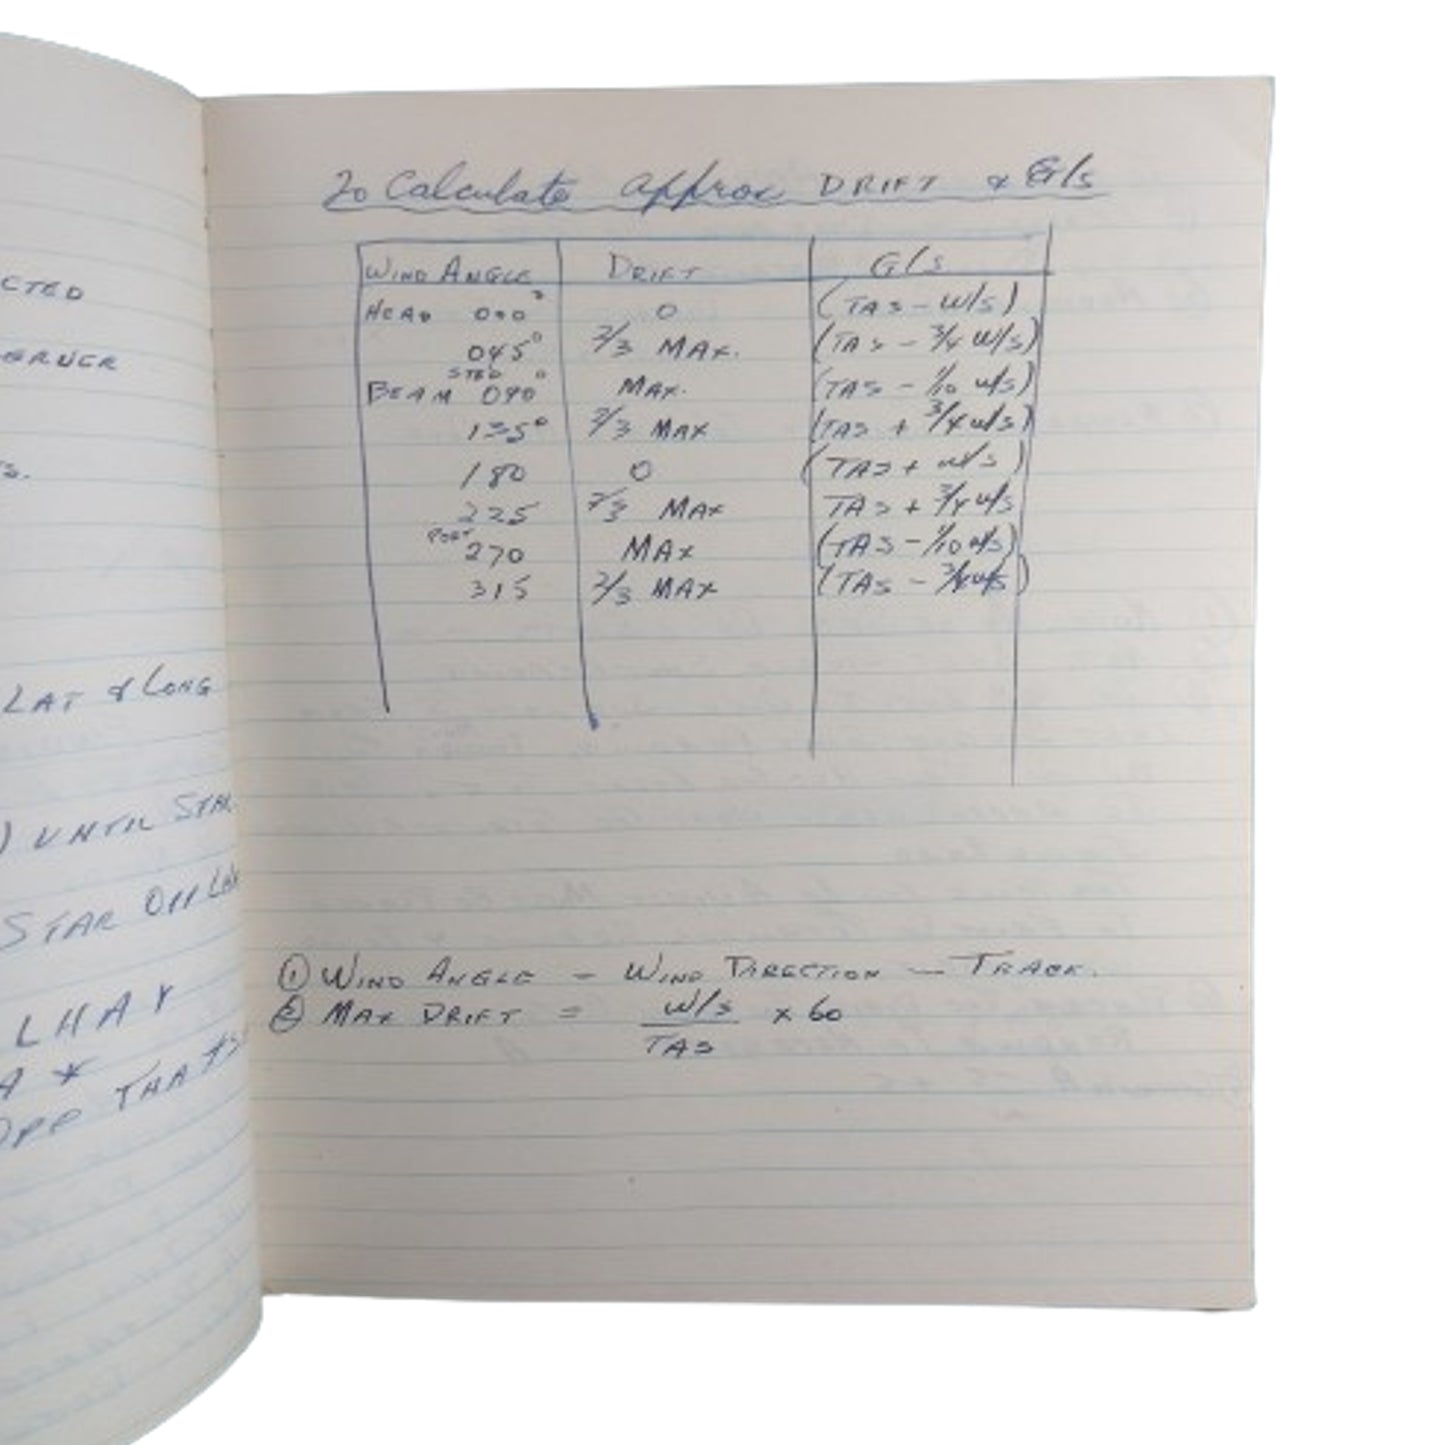 CTED
S.
LAT & LONG
) UNTIL STAR
STAR OFF
LHA γ
A *
OPP THAT
To Calculate approx DRIFT & G/S
WIND ANGLE DRIFT G/S
HEAD 000° 0 (TAS - W/S)
045° 2/3 MAX. (TAS - 3/4 W/S)
STBD
BEAM 090° MAX. (TAS - 1/10 W/S)
135° 2/3 MAX (TAS + 3/4 W/S)
180 0 (TAS + W/S)
225 2/3 MAX TAS + 3/4 W/S
PORT 270 MAX (TAS - 1/10 W/S)
315 2/3 MAX (TAS - 3/4 W/S)
① WIND ANGLE = WIND DIRECTION - TRACK.
② MAX DRIFT = W/S × 60
TAS